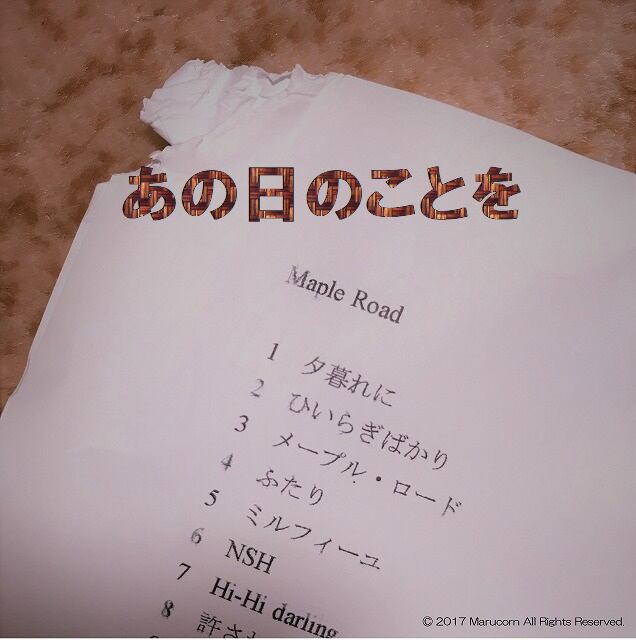 あの日のことを
Maple Road
1 夕暮れに
2 ひいらぎばかり
3 メープル・ロード
4 ふたり
5 ミルフィーユ
6 NSH
7 Hi-Hi darling
8 許さ
© 2017 Marucorn All Rights Reserved.